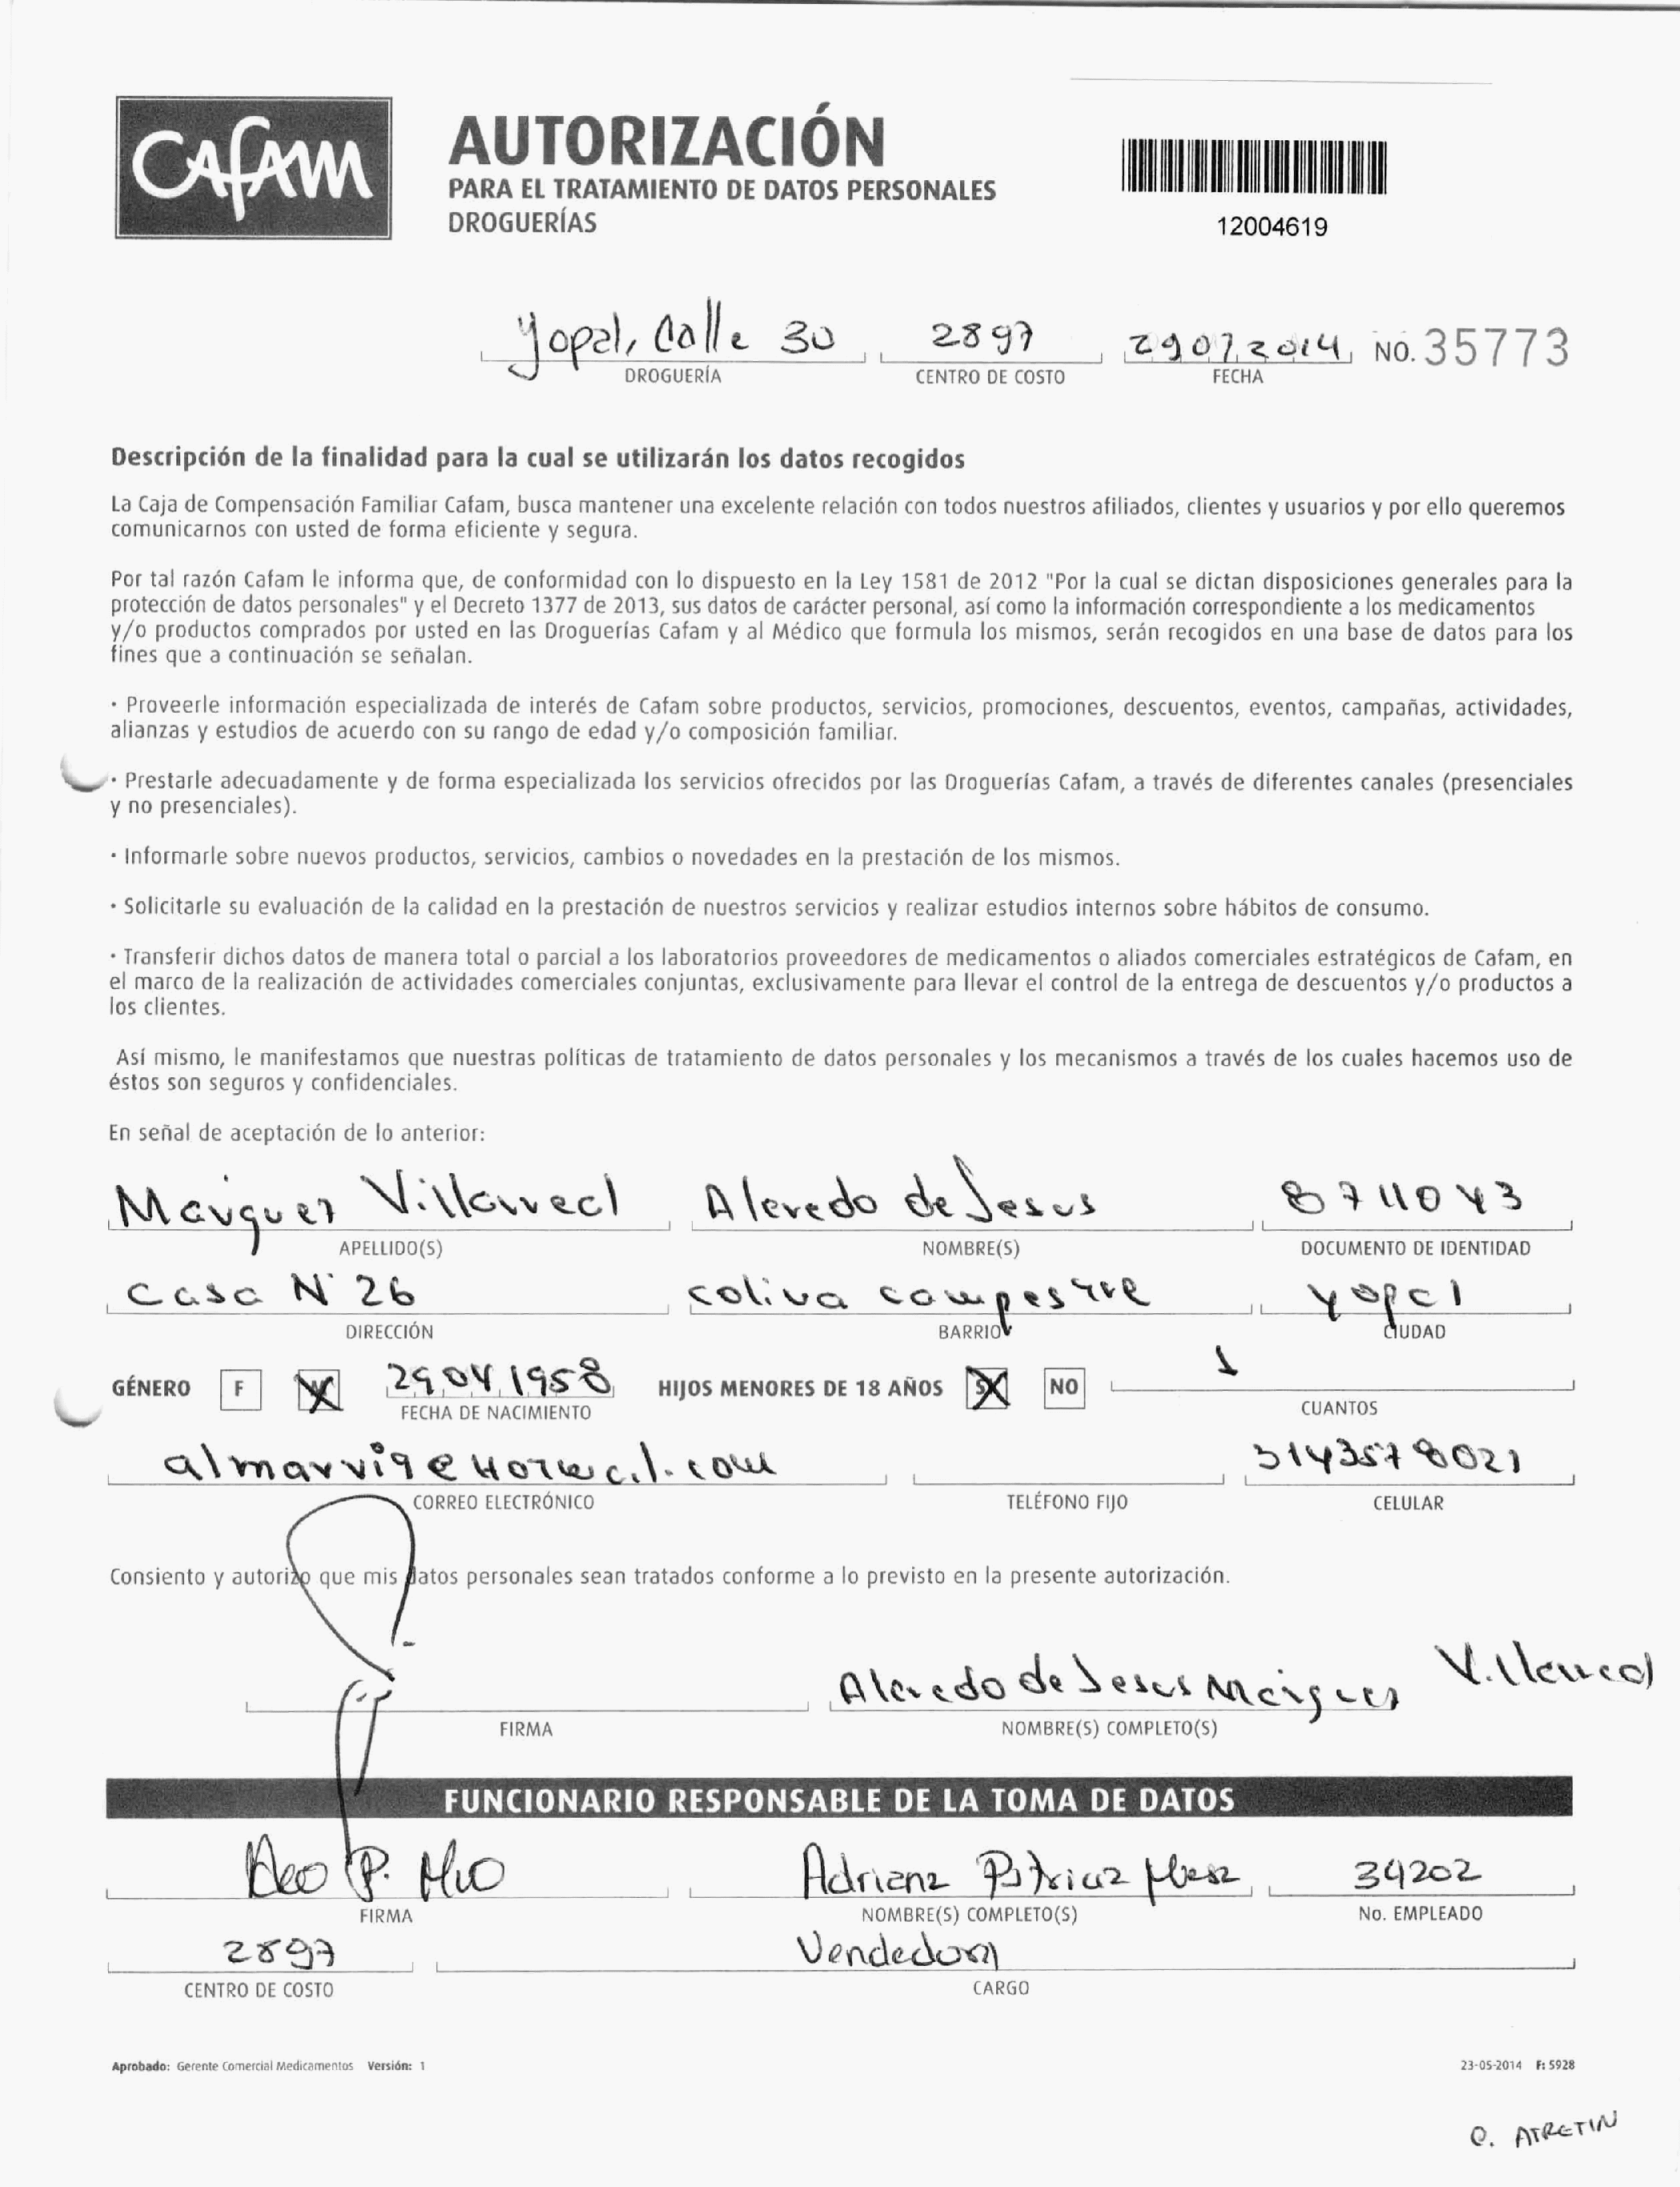 Cafam
AUTORIZACIÓN
PARA EL TRATAMIENTO DE DATOS PERSONALES
DROGUERÍAS
12004619
Yopal, Calle 30 2897 29 07 2014 NO. 35773
DROGUERÍA CENTRO DE COSTO FECHA
Descripción de la finalidad para la cual se utilizarán los datos recogidos
La Caja de Compensación Familiar Cafam, busca mantener una excelente relación con todos nuestros afiliados, clientes y usuarios y por ello queremos
comunicarnos con usted de forma eficiente y segura.
Por tal razón Cafam le informa que, de conformidad con lo dispuesto en la Ley 1581 de 2012 "Por la cual se dictan disposiciones generales para la
protección de datos personales" y el Decreto 1377 de 2013, sus datos de carácter personal, así como la información correspondiente a los medicamentos
y/o productos comprados por usted en las Droguerías Cafam y al Médico que formula los mismos, serán recogidos en una base de datos para los
fines que a continuación se señalan.
· Proveerle información especializada de interés de Cafam sobre productos, servicios, promociones, descuentos, eventos, campañas, actividades,
alianzas y estudios de acuerdo con su rango de edad y/o composición familiar.
· Prestarle adecuadamente y de forma especializada los servicios ofrecidos por las Droguerías Cafam, a través de diferentes canales (presenciales
y no presenciales).
· Informarle sobre nuevos productos, servicios, cambios o novedades en la prestación de los mismos.
· Solicitarle su evaluación de la calidad en la prestación de nuestros servicios y realizar estudios internos sobre hábitos de consumo.
· Transferir dichos datos de manera total o parcial a los laboratorios proveedores de medicamentos o aliados comerciales estratégicos de Cafam, en
el marco de la realización de actividades comerciales conjuntas, exclusivamente para llevar el control de la entrega de descuentos y/o productos a
los clientes.
Así mismo, le manifestamos que nuestras políticas de tratamiento de datos personales y los mecanismos a través de los cuales hacemos uso de
éstos son seguros y confidenciales.
En señal de aceptación de lo anterior:
Marquez Villarreal Alfredo de Jesus 8711043
APELLIDO(S) NOMBRE(S) DOCUMENTO DE IDENTIDAD
Casa N° 26 campestre Yopal
DIRECCIÓN BARRIO CIUDAD
GÉNERO F M 29 04 1958 HIJOS MENORES DE 18 AÑOS SI NO 1
FECHA DE NACIMIENTO CUANTOS
almarvi9@Hotmail.com 3143578021
CORREO ELECTRÓNICO TELÉFONO FIJO CELULAR
Consiento y autorizo que mis datos personales sean tratados conforme a lo previsto en la presente autorización.
Alfredo de Jesus Marquez Villarreal
FIRMA NOMBRE(S) COMPLETO(S)
FUNCIONARIO RESPONSABLE DE LA TOMA DE DATOS
Adriana Patricia 34202
FIRMA NOMBRE(S) COMPLETO(S) No. EMPLEADO
2897 Vendedora
CENTRO DE COSTO CARGO
Aprobado: Gerente Comercial Medicamentos Versión: 1 23-05-2014 F: 5928
O. ATRETIN